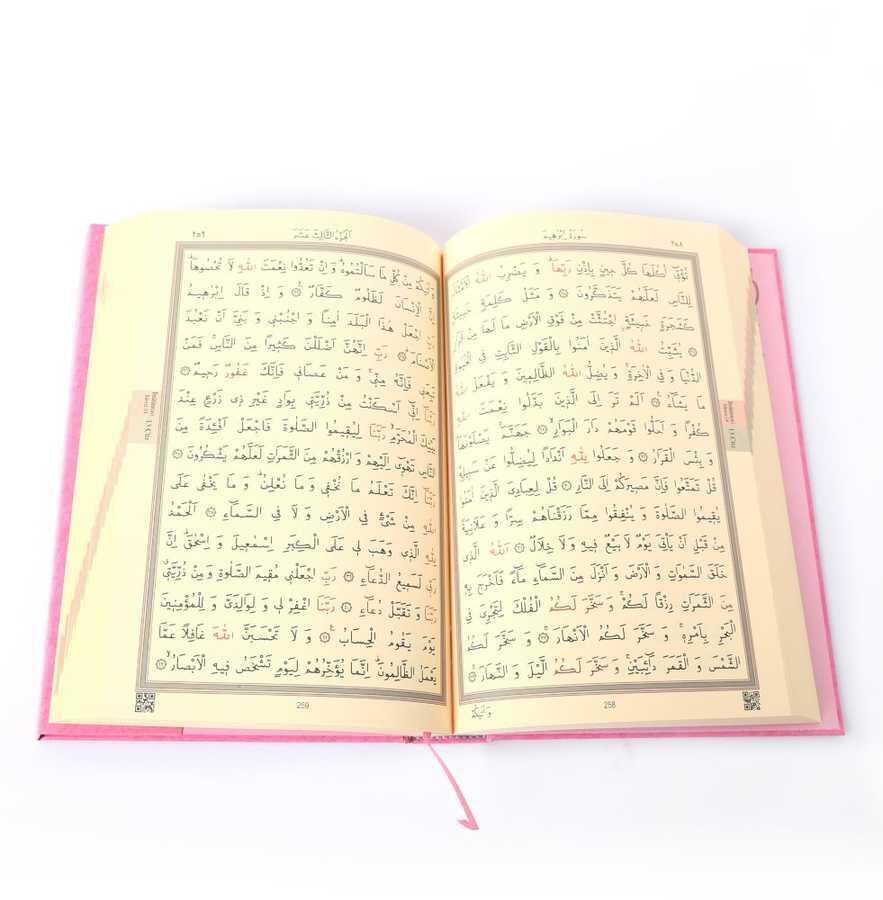 سُورَةُ اِبْرٰه۪يمَ
٢٥٨
تُؤْت۪ٓي اُكُلَهَا كُلَّ ح۪ينٍ بِاِذْنِ رَبِّهَاۜ وَ يَضْرِبُ اللّٰهُ الْاَمْثَالَ
لِلنَّاسِ لَعَلَّهُمْ يَتَذَكَّرُونَ ۝ وَ مَثَلُ كَلِمَةٍ خَب۪يثَةٍ
كَشَجَرَةٍ خَب۪يثَةٍۨ اجْتُثَّتْ مِنْ فَوْقِ الْاَرْضِ مَا لَهَا مِنْ قَرَارٍ
۝ يُثَبِّتُ اللّٰهُ الَّذ۪ينَ اٰمَنُوا بِالْقَوْلِ الثَّابِتِ فِي الْحَيٰوةِ
الدُّنْيَا وَ فِي الْاٰخِرَةِۚ وَ يُضِلُّ اللّٰهُ الظَّالِم۪ينَ وَ يَفْعَلُ اللّٰهُ
مَا يَشَٓاءُ۟ ۝ اَلَمْ تَرَ اِلَى الَّذ۪ينَ بَدَّلُوا نِعْمَتَ اللّٰهِ
كُفْرًا وَ اَحَلُّوا قَوْمَهُمْ دَارَ الْبَوَارِۙ ۝ جَهَنَّمَۚ يَصْلَوْنَهَاۜ
وَ بِئْسَ الْقَرَارُ ۝ وَ جَعَلُوا لِلّٰهِ اَنْدَادًا لِيُضِلُّوا عَنْ سَب۪يلِه۪ۜ
قُلْ تَمَتَّعُوا فَاِنَّ مَص۪يرَكُمْ اِلَى النَّارِ ۝ قُلْ لِعِبَادِيَ الَّذ۪ينَ اٰمَنُوا
يُق۪يمُوا الصَّلٰوةَ وَ يُنْفِقُوا مِمَّا رَزَقْنَاهُمْ سِرًّا وَ عَلَانِيَةً
مِنْ قَبْلِ اَنْ يَأْتِيَ يَوْمٌ لَا بَيْعٌ ف۪يهِ وَ لَا خِلَالٌ ۝ اَللّٰهُ الَّذ۪ي
خَلَقَ السَّمٰوَاتِ وَ الْاَرْضَ وَ اَنْزَلَ مِنَ السَّمَٓاءِ مَٓاءً فَاَخْرَجَ بِه۪
مِنَ الثَّمَرَاتِ رِزْقًا لَكُمْۚ وَ سَخَّرَ لَكُمُ الْفُلْكَ لِتَجْرِيَ فِي
الْبَحْرِ بِاَمْرِه۪ۚ وَ سَخَّرَ لَكُمُ الْاَنْهَارَۚ ۝ وَ سَخَّرَ لَكُمُ
الشَّمْسَ وَ الْقَمَرَ دَٓائِبَيْنِۚ وَ سَخَّرَ لَكُمُ الَّيْلَ وَ النَّهَارَۚ ۝
258
اَلْجُزْءُ الثَّالِثَ عَشَرَ
٢٥٩
وَ اٰتٰيكُمْ مِنْ كُلِّ مَا سَاَلْتُمُوهُۜ وَ اِنْ تَعُدُّوا نِعْمَتَ اللّٰهِ لَا تُحْصُوهَاۜ
اِنَّ الْاِنْسَانَ لَظَلُومٌ كَفَّارٌ۟ ۝ وَ اِذْ قَالَ اِبْرٰه۪يمُ
رَبِّ اجْعَلْ هٰذَا الْبَلَدَ اٰمِنًا وَ اجْنُبْن۪ي وَ بَنِيَّ اَنْ نَعْبُدَ
الْاَصْنَامَۜ ۝ رَبِّ اِنَّهُنَّ اَضْلَلْنَ كَث۪يرًا مِنَ النَّاسِۚ فَمَنْ
تَبِعَن۪ي فَاِنَّهُ مِنّ۪يۚ وَ مَنْ عَصَان۪ي فَاِنَّكَ غَفُورٌ رَح۪يمٌ ۝
رَبَّنَٓا اِنّ۪ٓي اَسْكَنْتُ مِنْ ذُرِّيَّت۪ي بِوَادٍ غَيْرِ ذ۪ي زَرْعٍ عِنْدَ
بَيْتِكَ الْمُحَرَّمِۙ رَبَّنَا لِيُق۪يمُوا الصَّلٰوةَ فَاجْعَلْ اَفْـِٔدَةً مِنَ
النَّاسِ تَهْو۪ٓي اِلَيْهِمْ وَ ارْزُقْهُمْ مِنَ الثَّمَرَاتِ لَعَلَّهُمْ يَشْكُرُونَ ۝
رَبَّنَٓا اِنَّكَ تَعْلَمُ مَا نُخْف۪ي وَ مَا نُعْلِنُۜ وَ مَا يَخْفٰى عَلَى
اللّٰهِ مِنْ شَيْءٍ فِي الْاَرْضِ وَ لَا فِي السَّمَٓاءِ ۝ اَلْحَمْدُ
لِلّٰهِ الَّذ۪ي وَهَبَ ل۪ي عَلَى الْكِبَرِ اِسْمٰع۪يلَ وَ اِسْحٰقَۜ اِنَّ
رَبّ۪ي لَسَم۪يعُ الدُّعَٓاءِ ۝ رَبِّ اجْعَلْن۪ي مُق۪يمَ الصَّلٰوةِ وَ مِنْ ذُرِّيَّت۪يۗ
رَبَّنَا وَ تَقَبَّلْ دُعَٓاءِ ۝ رَبَّنَا اغْفِرْ ل۪ي وَ لِوَالِدَيَّ وَ لِلْمُؤْمِن۪ينَ
يَوْمَ يَقُومُ الْحِسَابُ۟ ۝ وَ لَا تَحْسَبَنَّ اللّٰهَ غَافِلًا عَمَّا
يَعْمَلُ الظَّالِمُونَۜ اِنَّمَا يُؤَخِّرُهُمْ لِيَوْمٍ تَشْخَصُ ف۪يهِ الْاَبْصَارُۙ ۝
259